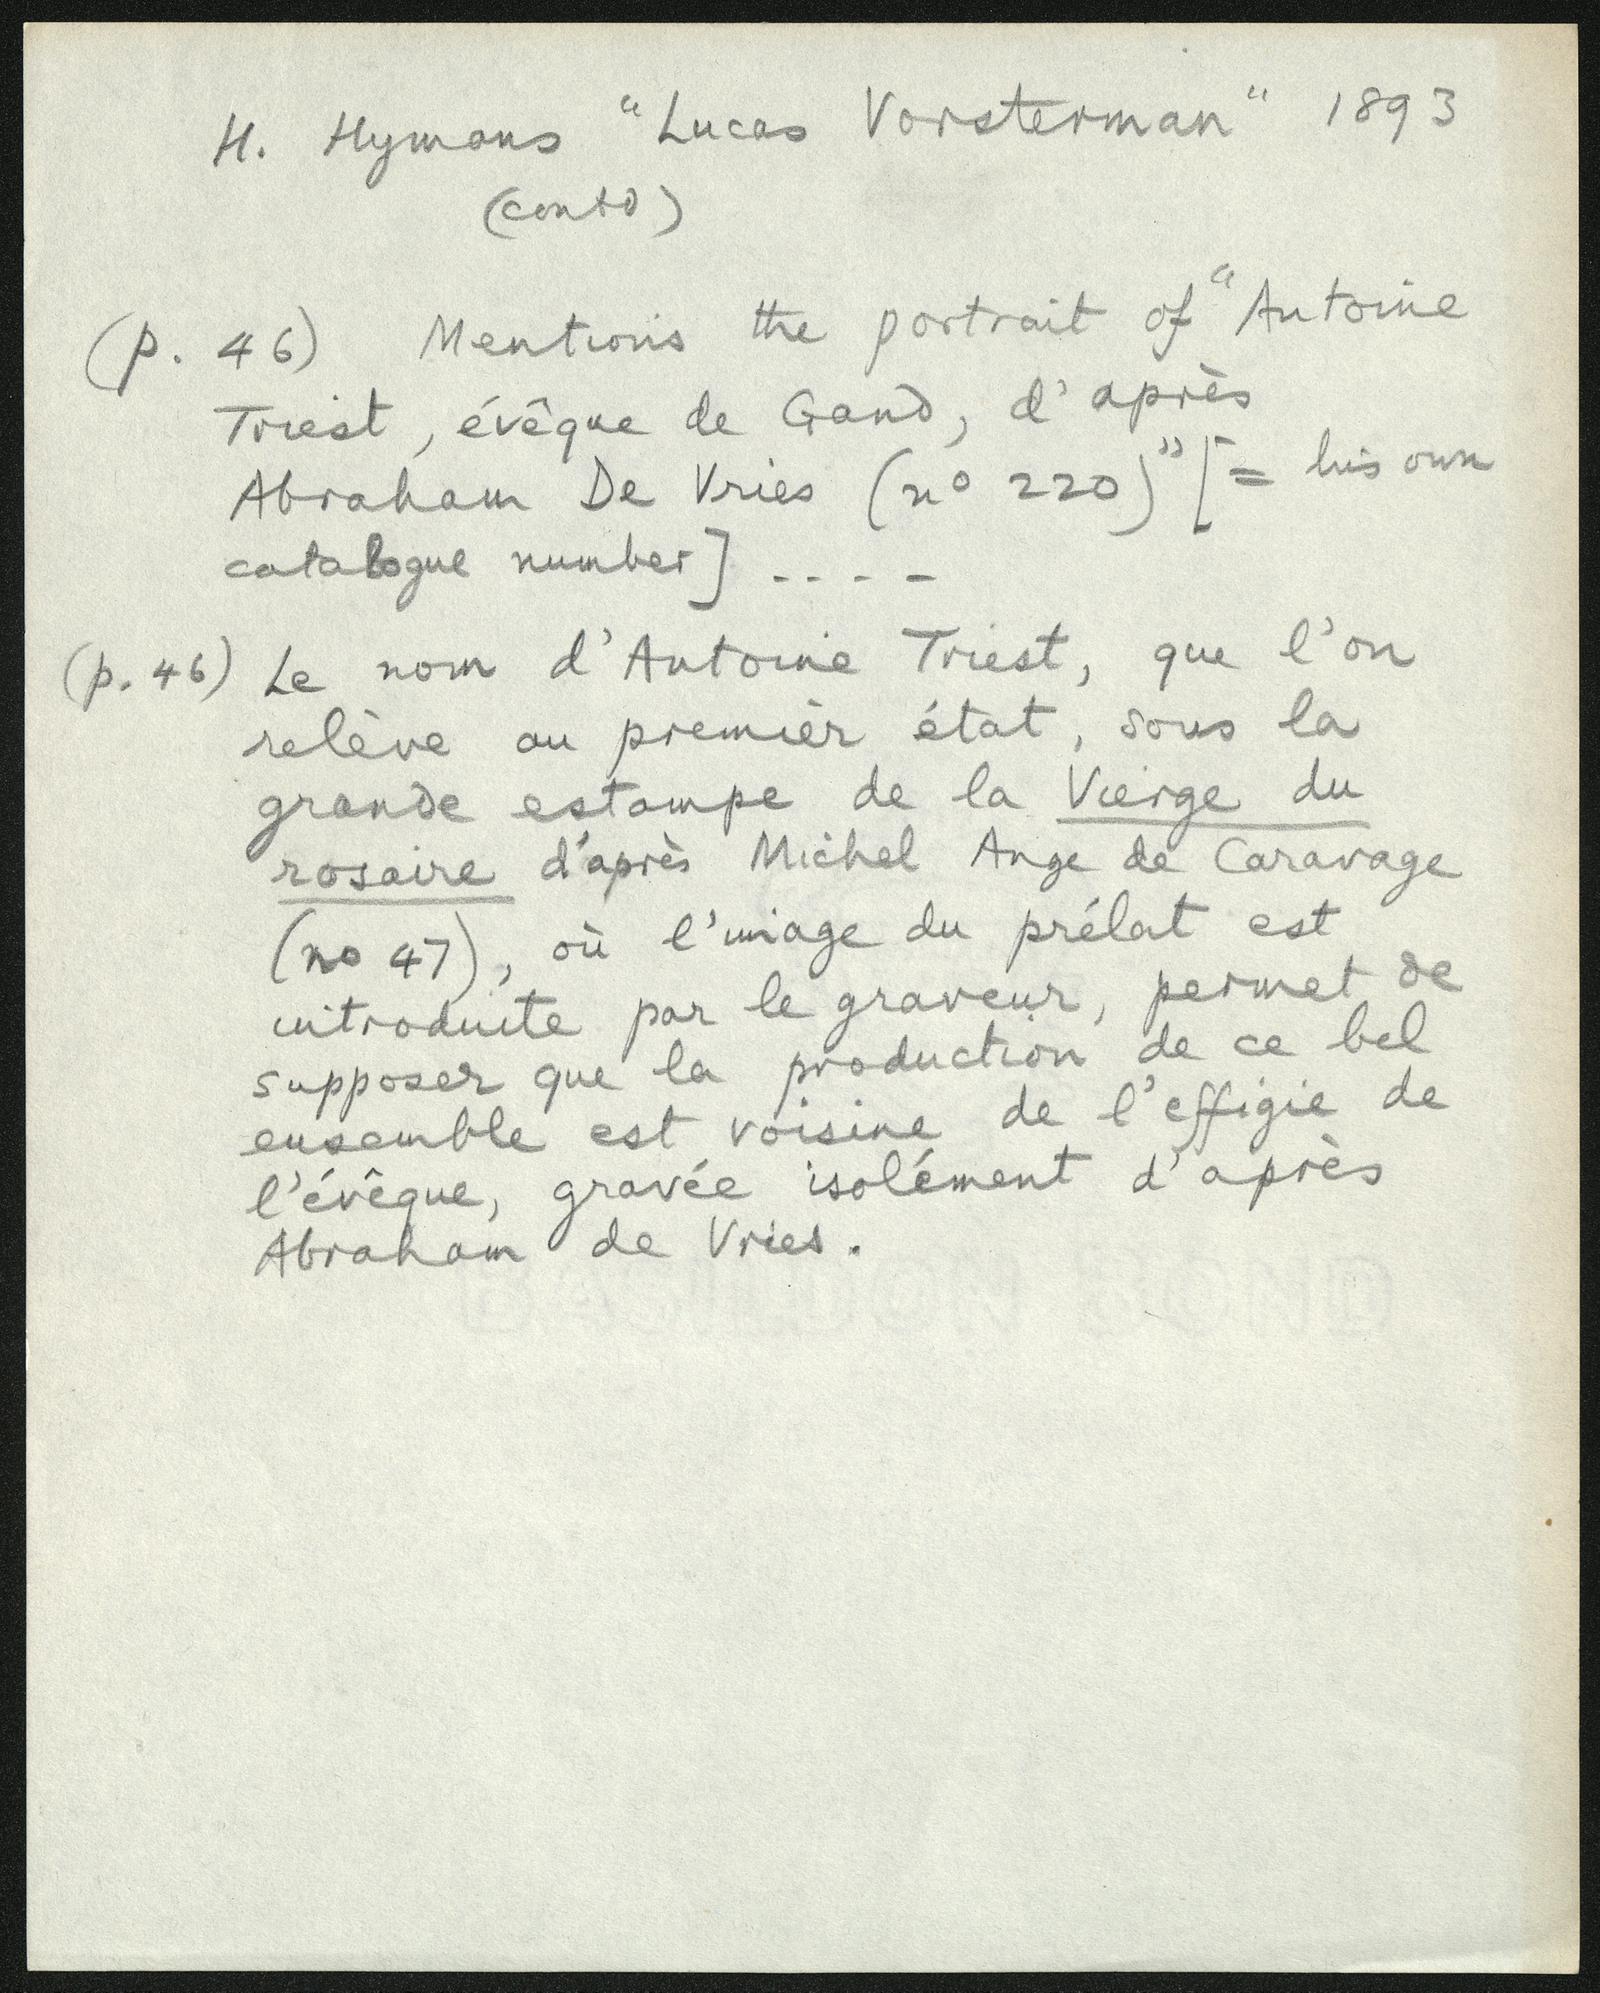 H. Hymans "Lucas Vorsterman" 1893
(contd)
(p. 46) Mentions the portrait of "Antoine
Triest, évêque de Gand, d'après
Abraham De Vries (no 220)" [= his own
catalogue number] ----
(p. 46) Le nom d'Antoine Triest, que l'on
relève au premier état, sous la
grande estampe de la Vierge du
rosaire d'après Michel Ange de Caravage
(no 47), où l'image du prélat est
introduite par le graveur, permet de
supposer que la production de ce bel
ensemble est voisine de l'effigie de
l'évêque, gravée isolément d'après
Abraham de Vries.